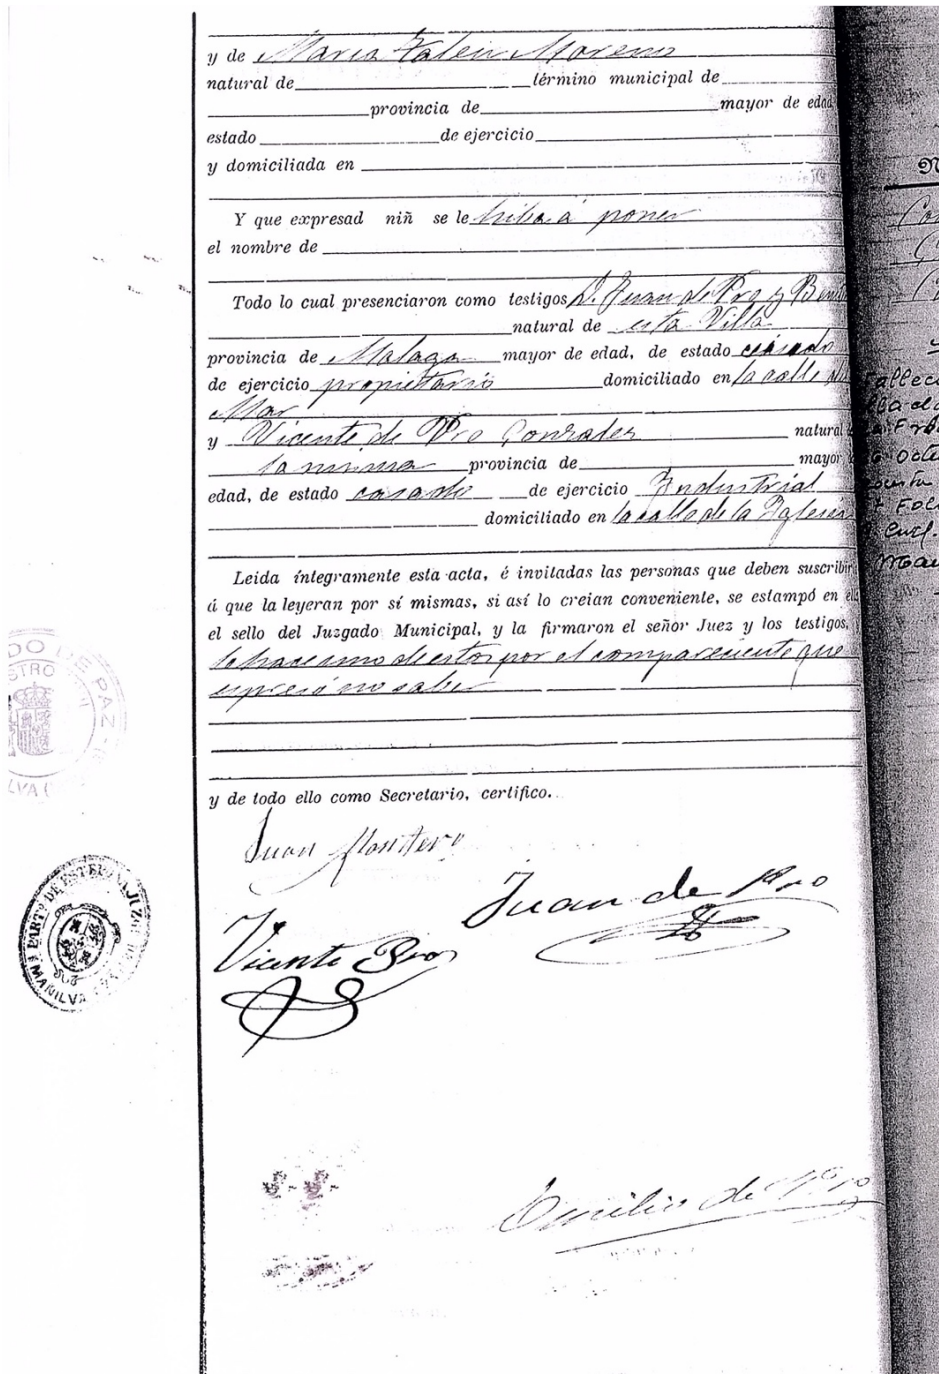 y de Maria Valen Moreno
natural de término municipal de
provincia de mayor de edad
estado de ejercicio
y domiciliada en
Y que expresad niñ se le hiba á poner
el nombre de
Todo lo cual presenciaron como testigos D. Juan de Pro y
natural de esta Villa
provincia de Malaga mayor de edad, de estado casado
de ejercicio propietario domiciliado en la calle
Mar
y Vicente de Pro Gonzalez natural
la misma provincia de mayor
edad, de estado casado de ejercicio Industrial
domiciliado en la calle de la Iglesia
Leida íntegramente esta acta, é invitadas las personas que deben suscribir
á que la leyeran por sí mismas, si así lo creian conveniente, se estampó en el
el sello del Juzgado Municipal, y la firmaron el señor Juez y los testigos,
lo hace uno de estos por el compareciente que
expresó no saber
y de todo ello como Secretario, certifico.
Juan Montero
Juan de Pro
Vicente Pro
Emilio de Pro
DO DE PAZ
PARTº DE ESTEPONA
MANILVA